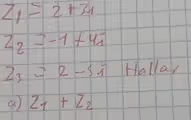 Z1 = 2+3i
Z2 = -1+4i
Z3 = 2-5i Hallar
a) Z1 + Z2